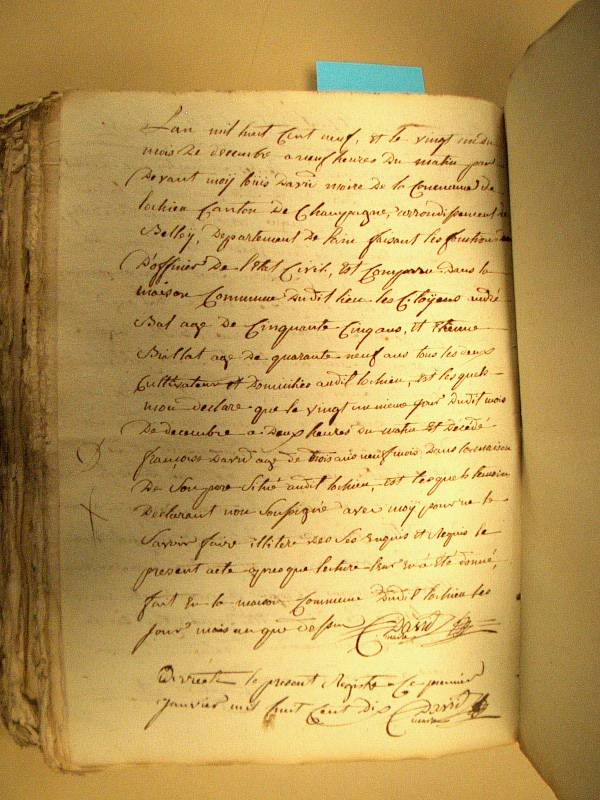 Lan mil huit Cent neuf, et le vingt
mois De decembre a neuf heures Du matin par
Devant moÿ loüis David maire De la Commune De
lochieu Canton De Champagne, arrondissement de
Belleÿ, Departement de faisant les fonctions
Dofficier De l'Etat Civil, Est Comparu Dans la
maison Commune Dudit lieu les Citoÿens andré
Bal age De Cinquante Cinq ans, et Etienne
Biollat age De quarante neuf ans tous les deux
Cultivateur et Domicilies audit lochieu, Est lesquels
mon declare que le vingt un Dudit mois
De decembre a Deux heures Du matin Est Decedé
françoise David age de trois ans neuf mois Dans la maison
De Son pere audit lochieu, Est lesquels temoin
Declarant non Soussigne avec moÿ pour ne le
Savoir faire De Ses Enquis et Requis le
present acte apres que lecture leur En a Eté donné,
fait En la maison Commune Dudit lochieu les
jour mois et an que dessu David
maire
le present Registre Ce premier
Janvier mil huit Cent dix David
maire